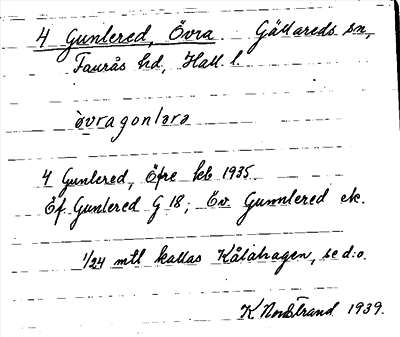 4 Gunlered, Övra Gällareds sn,
Faurås hd, Hall. l.
òvragonlərə
4 Gunlered, Öfre kb 1935.
Öf. Gunlered G 18; Öv. Gunnlered ek.
1/24 mtl kallas Kålahagen, se d:o.
K Nordstrand 1939.